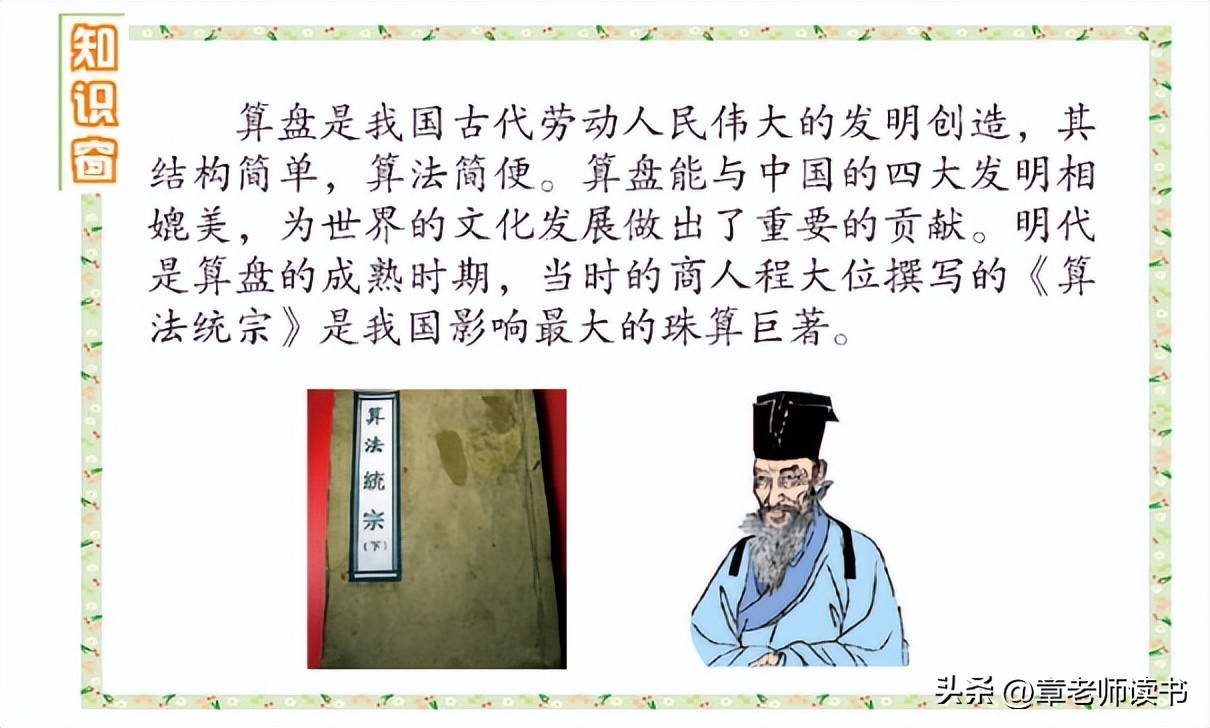 知识窗
算盘是我国古代劳动人民伟大的发明创造，其
结构简单，算法简便。算盘能与中国的四大发明相
媲美，为世界的文化发展做出了重要的贡献。明代
是算盘的成熟时期，当时的商人程大位撰写的《算
法统宗》是我国影响最大的珠算巨著。
算法統宗（下）
头条 @章老师读书